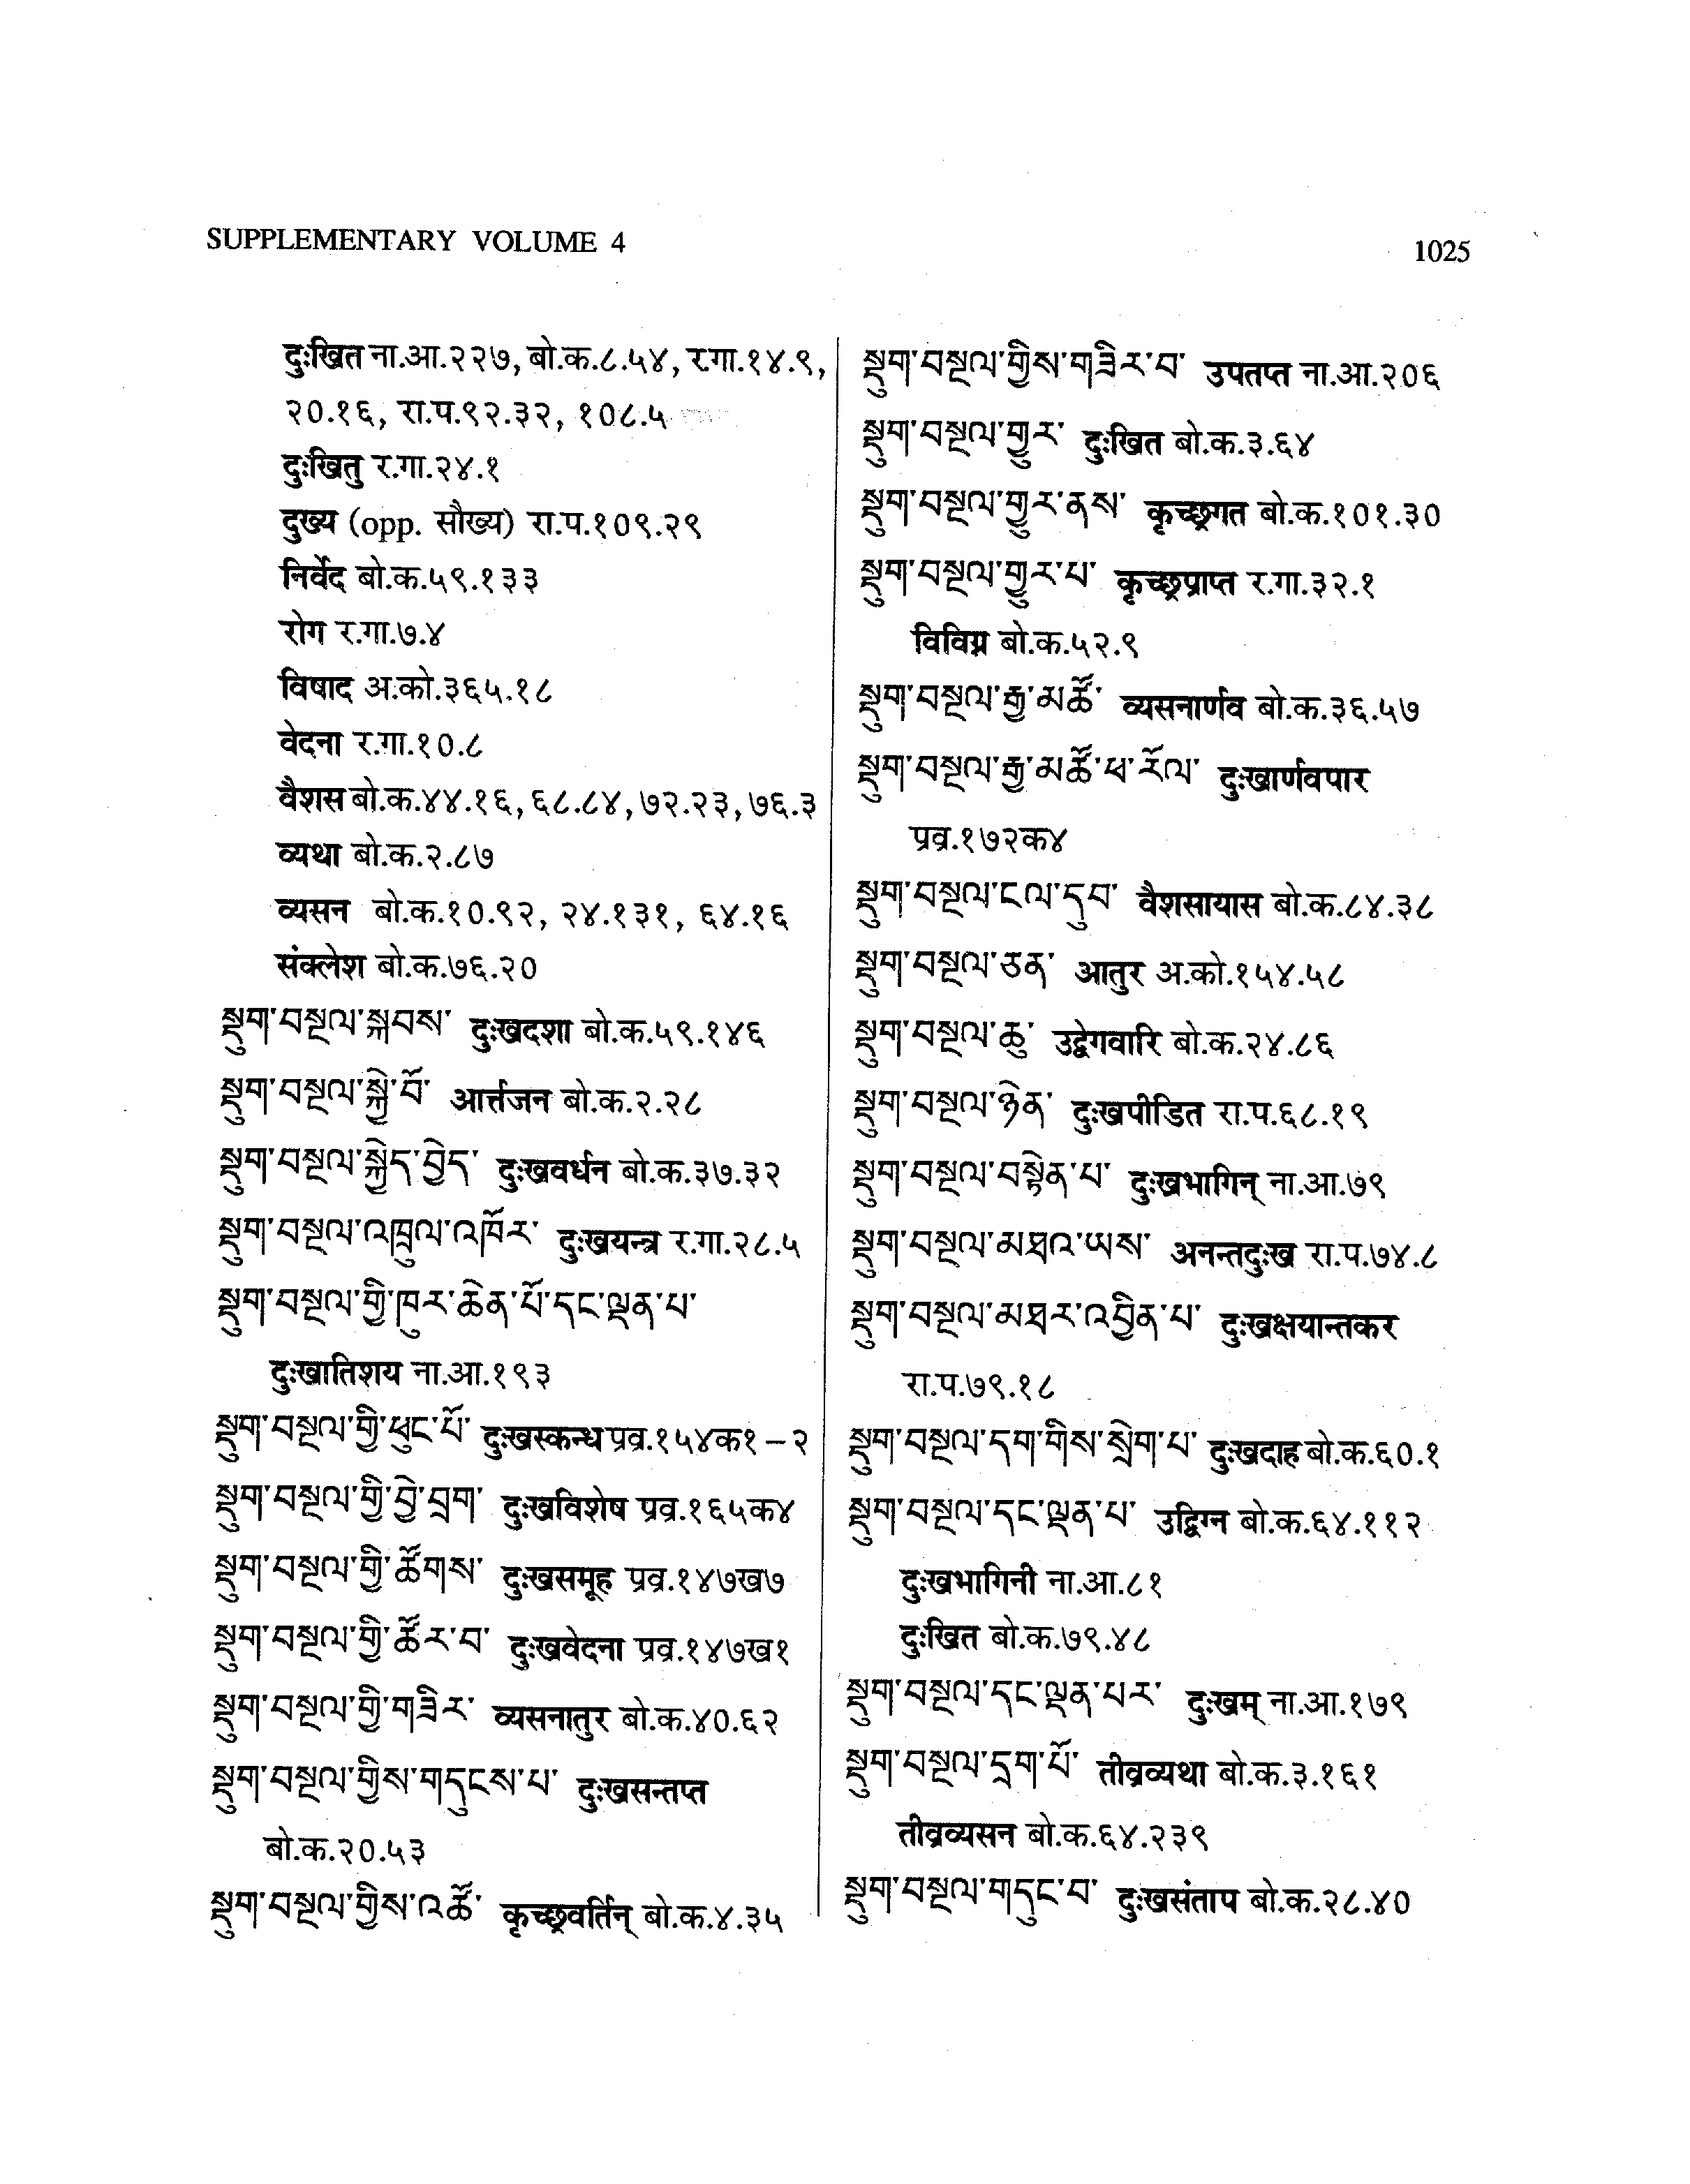 SUPPLEMENTARY VOLUME 4
1025
दुःखित ना.आ.२२७, बो.क.८.५४, र.गा.१४.९,
२०.१६, रा.प.९२.३२, १०८.५
दुःखितु र.गा.२४.१
दुख्य (opp. सौख्य) रा.प.१०९.२९
निर्वेद बो.क.५९.१३३
रोग र.गा.७.४
विषाद अ.को.३६५.१८
वेदना र.गा.१०.८
वैशस बो.क.४४.१६, ६८.८४, ७२.२३, ७६.३
व्यथा बो.क.२.८७
व्यसन बो.क.१०.९२, २४.१३१, ६४.१६
संक्लेश बो.क.७६.२०
སྡུག་བསྔལ་སྐབས་ दुःखदशा बो.क.५९.१४६
སྡུག་བསྔལ་སྐྱེ་བོ་ आर्त्तजन बो.क.२.२८
སྡུག་བསྔལ་སྐྱེད་བྱེད་ दुःखवर्धन बो.क.३७.३२
སྡུག་བསྔལ་འཁྲུལ་འཁོར་ दुःखयन्त्र र.गा.२८.५
སྡུག་བསྔལ་གྱི་ཁུར་ཆེན་པོ་དང་ལྡན་པ་
दुःखातिशय ना.आ.१९३
སྡུག་བསྔལ་གྱི་ཕུང་པོ་ दुःखस्कन्ध प्रव्र.१५४क१-२
སྡུག་བསྔལ་གྱི་བྱེ་བྲག་ दुःखविशेष प्रव्र.१६५क४
སྡུག་བསྔལ་གྱི་ཚོགས་ दुःखसमूह प्रव्र.१४७ख७
སྡུག་བསྔལ་གྱི་ཚོར་བ་ दुःखवेदना प्रव्र.१४७ख१
སྡུག་བསྔལ་གྱི་གཟིར་ व्यसनातुर बो.क.४०.६२
སྡུག་བསྔལ་གྱིས་གདུངས་པ་ दुःखसन्तप्त
बो.क.२०.५३
སྡུག་བསྔལ་གྱིས་འཚོ་ कृच्छ्रवर्तिन् बो.क.४.३५
སྡུག་བསྔལ་གྱིས་གཟིར་བ་ उपतप्त ना.आ.२०६
སྡུག་བསྔལ་གྱུར་ दुःखित बो.क.३.६४
སྡུག་བསྔལ་གྱུར་ནས་ कृच्छ्रगत बो.क.१०१.३०
སྡུག་བསྔལ་གྱུར་པ་ कृच्छ्रप्राप्त र.गा.३२.१
विविग्न बो.क.५२.९
སྡུག་བསྔལ་རྒྱ་མཚོ་ व्यसनार्णव बो.क.३६.५७
སྡུག་བསྔལ་རྒྱ་མཚོ་ཕ་རོལ་ दुःखार्णवपार
प्रव्र.१७२क४
སྡུག་བསྔལ་ངལ་དུབ་ वैशसायास बो.क.८४.३८
སྡུག་བསྔལ་ཅན་ आतुर अ.को.१५४.५८
སྡུག་བསྔལ་ཆུ་ उद्वेगवारि बो.क.२४.८६
སྡུག་བསྔལ་ཉེན་ दुःखपीडित रा.प.६८.१९
སྡུག་བསྔལ་བསྟེན་པ་ दुःखभागिन् ना.आ.७९
སྡུག་བསྔལ་མཐའ་ཡས་ अनन्तदुःख रा.प.७४.८
སྡུག་བསྔལ་མཐར་འབྱིན་པ་ दुःखक्षयान्तकर
रा.प.७९.१८
སྡུག་བསྔལ་དག་གིས་སྲེག་པ་ दुःखदाह बो.क.६०.१
སྡུག་བསྔལ་དང་ལྡན་པ་ उद्विग्न बो.क.६४.११२
दुःखभागिनी ना.आ.८१
दुःखित बो.क.७९.४८
སྡུག་བསྔལ་དང་ལྡན་པར་ दुःखम् ना.आ.१७९
སྡུག་བསྔལ་དྲག་པོ་ तीव्रव्यथा बो.क.३.१६१
तीव्रव्यसन बो.क.६४.२३९
སྡུག་བསྔལ་གདུང་བ་ दुःखसंताप बो.क.२८.४०